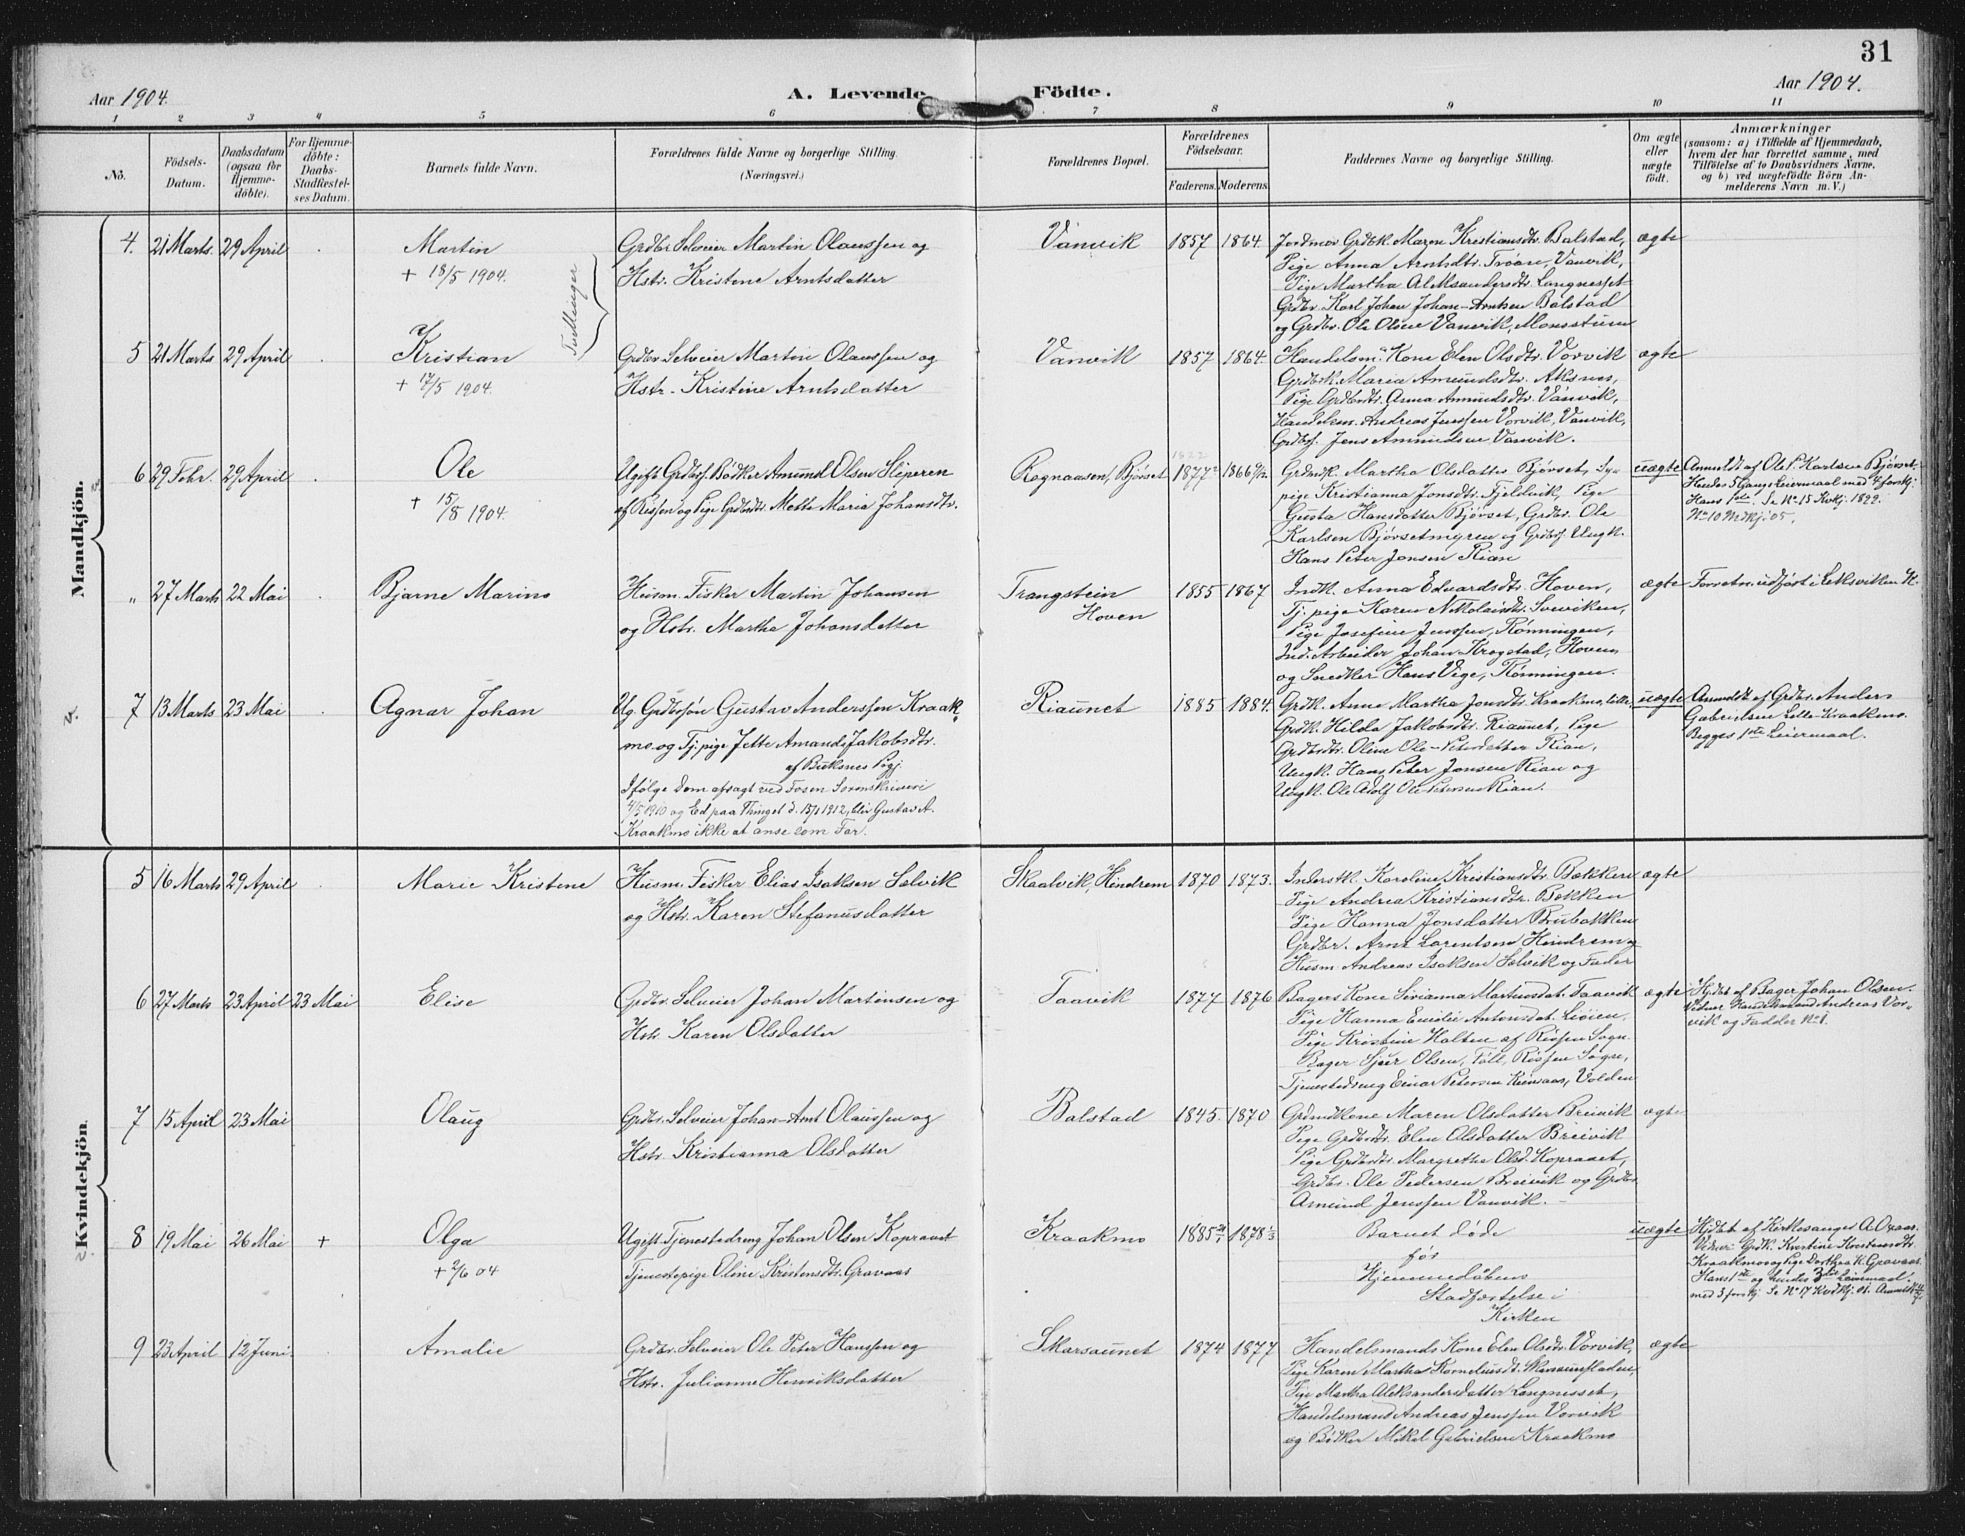 31
Aar 1904.
A. Levende Födte.
Aar 1904.
1 2 3 4 5 6 7 8 9 10 11
No.
Födsels-Datum.
Daabsdatum (ogsaa for Hjemme-döbte).
For Hjemme-döbte: Daabs-Stadfæstel-ses Datum.
Barnets fulde Navn.
Forældrenes fulde Navne og borgerlige Stilling.
(Næringsvei.)
Forældrenes Bopæl.
Forældrenes Födselsaar.
Faderens. Moderens.
Faddernes Navne og borgerlige Stilling.
Om ægte eller uægte født.
Anmærkninger
(saasom: a) i Tilfælde af Hjemmedaab,
hvem der har forrettet samme, med
Tilföielse af to Daabsvidners Navne,
og b) ved uægtefödte Börn An-
melderens Navn m. V.)
Mandkjön.
4. 21 Marts. 29 April . Martin
+ 18/5 1904.
Tvillinger
Grdbr. Selveier Martin Olaussen og
Hstr. Kristene Arntsdatter
Vanvik 1857 1864.
Jordmor Grdbk. Maren Kristiansdtr. Balstad,
Pige Anna Arntsdtr. Trøan, Vanvik,
Pige Martha Aleksandersdtr. Langnesset
Grdbr. Karl Johan Johan-Arntsen Balstad
og Grdbr. Ole Olsen Vanvik,
ægte
5 21 Marts 29 April . Kristian
+ 17/5 1904.
Grdbr. Selveier Martin Olaussen og
Hstr. Kristine Arntsdatter
Vanvik 1857 1864.
Handelsm. Kone Elen Olsdtr. Vorvik
Grdbrk. Maria Amundsdtr. Aksnes,
Pige Grdbrdtr. Anna Amundsdtr. Vanvik,
Handelsm. Andreas Jenssen Vorvik, Vanvik,
Grdbrs. Jens Amundsen Vanvik.
ægte
6 29 Febr. 29 April . Ole
+ 15/5 1904.
Ugift Grdbrs. Bødker Amund Olsen Sliperen
af Rissen og Pige Grdbrdtr. Mette Maria Johansdtr.
Ragnaasen, Bjørset 1877 1866
Grdmk. Martha Olsdatter Bjørset,
pige Kristianna Jonsdtr. Fjeldvik, Pige
Gusta Hansdatter Bjørset, Grdbr. Ole
Karlsen Bjørsetmyren og Grdbrs. Ungk.
Hans Peter Jonsen Rian
uægte
Anmeldt af Ole P. Karlsen Bjørset.
Hendes 5 Gangs Leiermaal med 4 forskj.
Hans 1ste. Se No 15 Kvkj. 1899.
No 10 Mdkj. 05.
„ 27 Marts 22 Mai . Bjarne Marino
Husm. Fisker Martin Johansen
og Hstr. Martha Johansdatter
Trangstein
Hoven
1855 1867
Indk. Anna Edvardsdtr. Hoven,
Tj. pige Karen Nikolaisdtr. Sveviken,
Pige Josefine Jenssen, Rønningen,
Ind. Arbeider Johan Krogstad, Hoven
og Snedker Hans Vige, Rønningen.
ægte
Forretn. udført i Leksviken K.
7 13 Marts 23 Mai . Agnar Johan
Ug. Grdbrsøn Gustav Anderssen Kraak-
mo og Tj. pige Jette Amanda Jakobsdtr.
af Buksnes Pgj.
Ifølge Dom afsagt ved Fosen Sorenskriveri
1910 og Ed paa Thinget d. 15/1 1912, blir Gustav A.
Kraakmo ikke at anse som Far.
Riaunet 1885 1884.
Grdk. Anne Martha Jonsdtr. Kraakmo, Lille,
Grdk. Hilda Jakobsdtr. Riaunet, Pige
Grdbrdtr. Oline Ole-Petersdatter Rian,
Ungk. Hans Peter Jonsen Rian og
Ungk. Ole Adolf Ole-Petersen Rian.
uægte
Anmeldt af Grdbr. Anders
Gabrielsen Lille-Kraakmo.
Begges 1ste Leiermaal.
Kvindekjön.
5 16 Marts 29 April . Marie Kristene
Husm. Fisker Elias Isaksen Sælvik
og Hstr. Karen Stefanusdatter
Skaalvik, Hindrem 1870 1873.
Inderstk. Karoline Kristiansdtr. Bakken
Pige Andrea Kristiansdtr. Bakken
Pige Hanna Jonsdatter Brubakken
Grdbr. Arnt Lorentsen Hindrem og
Husm. Andreas Isaksen Sælvik og Fader
ægte
6 27 Marts 23 April 23 Mai Elise
Grdbr. Selveier Johan Martinsen og
Hstr. Karen Olsdatter
Taavik 1877 1876
Bagers Kone Sivianna Martinsdat. Taavik
Pige Hanna Emilie Antonsdat. Liøien,
Pige Kristine Holten af Rissen Sogn.
Bager Sjur Olsen, Rissen Sogn,
Tjenestedreng Einar Petersen Volden
ægte
Hjdbt. af Bager Johan Olsen.
Vidner Handelsmand Andreas Vor-
vik og Fadder No 1.
7 15 April 23 Mai Olaug
Grdbr. Selveier Johan-Arnt Olaussen og
Hstr. Kristianna Olsdatter
Balstad 1845. 1870
Grdmdkone Maren Olsdatter Breivik
Pige Grdbrdtr. Elen Olsdatter Breivik
Pige Grdbrdtr. Margrethe Olsd. Kopraaet,
Grdbr. Ole Pedersen Breivik og Grdbr.
Amund Jenssen Vanvik.
ægte
8 19 Mai 26 Mai + Olga
+ 2/6 04
Ugift Tjenestedreng Johan Olsen Kopraaet
Tjenestepige Oline Kristensdtr. Gravaas
Kraakmo 1885 1878
Barnet døde
før
Hjemmedaabens
Stadfæstelse i
Kirken
uægte
Hjdbt. af Kirkesanger A. Oxaas.
Vidner Grdk. Kristine Kristensdtr.
Kraakmo og Pige Dorthea K. Gravaas.
Hans 1ste og hendes 3die Leiermaal
med 3 forskj. Se No 17 Kvdkj. 01.
9 23 April 12 Juni . Amalie
Grdbr. Selveier Ole Peter Hanssen og
Hstr. Julianne Henriksdatter
Skarsaunet 1874 1877
Handelsmands Kone Elen Olsdtr. Vorvik,
Pige Karen Martha Korneliusdt. Skarsaunfladen,
Pige Martha Aleksandersdatter Langnesset,
Handelsmand Andreas Jenssen Vorvik
og Bødker Mikal Gabrielsen Kraakmo
ægte